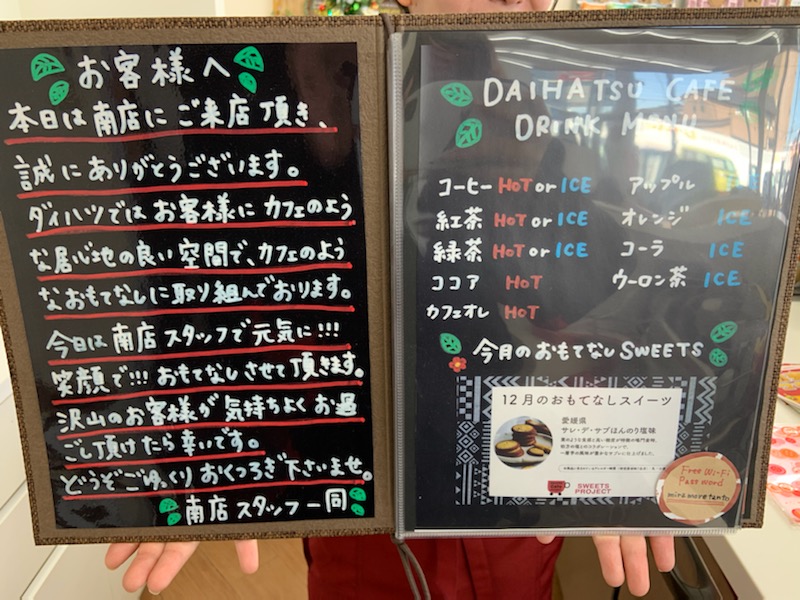 お客様へ
本日は南店にご来店頂き、
誠にありがとうございます。
ダイハツではお客様にカフェのよう
な居心地の良い空間で、カフェのよう
なおもてなしに取り組んでおります。
今日は南店スタッフで元気に!!!
笑顔で!!!おもてなしさせて頂きます。
沢山のお客様が気持ちよくお過
ごし頂けたら幸いです。
どうぞごゆっくりおくつろぎ下さいませ。
南店スタッフ一同
DAIHATSU CAFE
DRINK MENU
コーヒー HOT or ICE
紅茶 HOT or ICE
緑茶 HOT or ICE
ココア HOT
カフェオレ HOT
アップル
オレンジ ICE
コーラ ICE
ウーロン茶 ICE
今月のおもてなしSWEETS
12月のおもてなしスイーツ
愛媛県
サレ・デ・サブほんのり塩味
SWEETS
PROJECT
Free Wi-Fi
Password
miramoretanto